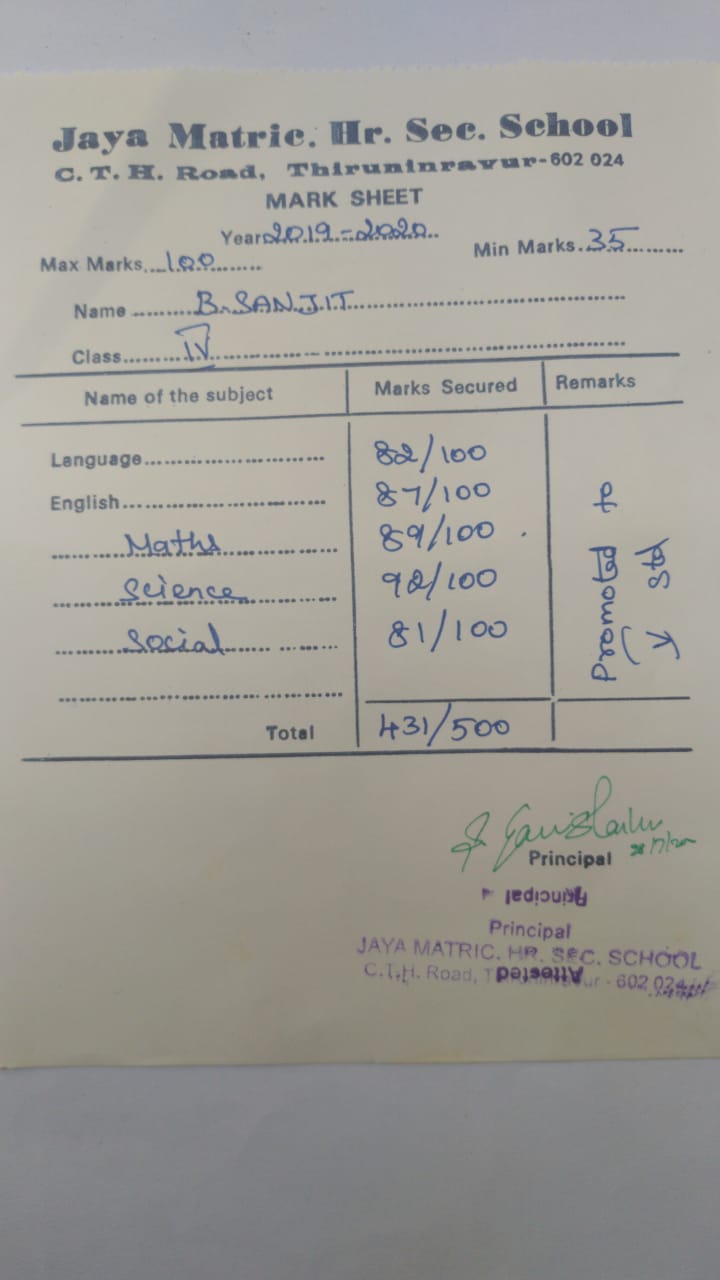 Jaya Matric. Hr. Sec. School
C.T.H. Road, Thiruninravur-602 024
MARK SHEET
Year 2019-2020
Max Marks 100 Min Marks 35
Name B. SANJIT
Class IV
Name of the subject Marks Secured Remarks
Language 82/100
English 87/100
Maths 89/100
Science 92/100
Social 81/100
Promoted to
V Std
Total 431/500
Principal
28/7/20
Principal
Principal
JAYA MATRIC. HR. SEC. SCHOOL
C.T.H. Road, Thiruninravur - 602 024
Attested